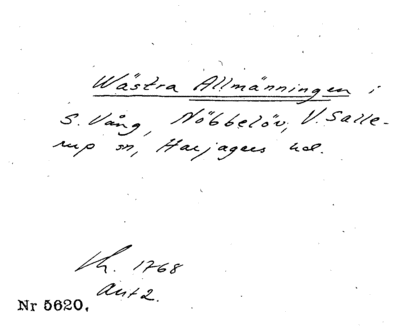 Wästra Allmänningen i
S. Vång, Nöbbelöv, V. Salle-
rup sn, Harjagers hd.
1768
Ant 2.
Nr 5620.